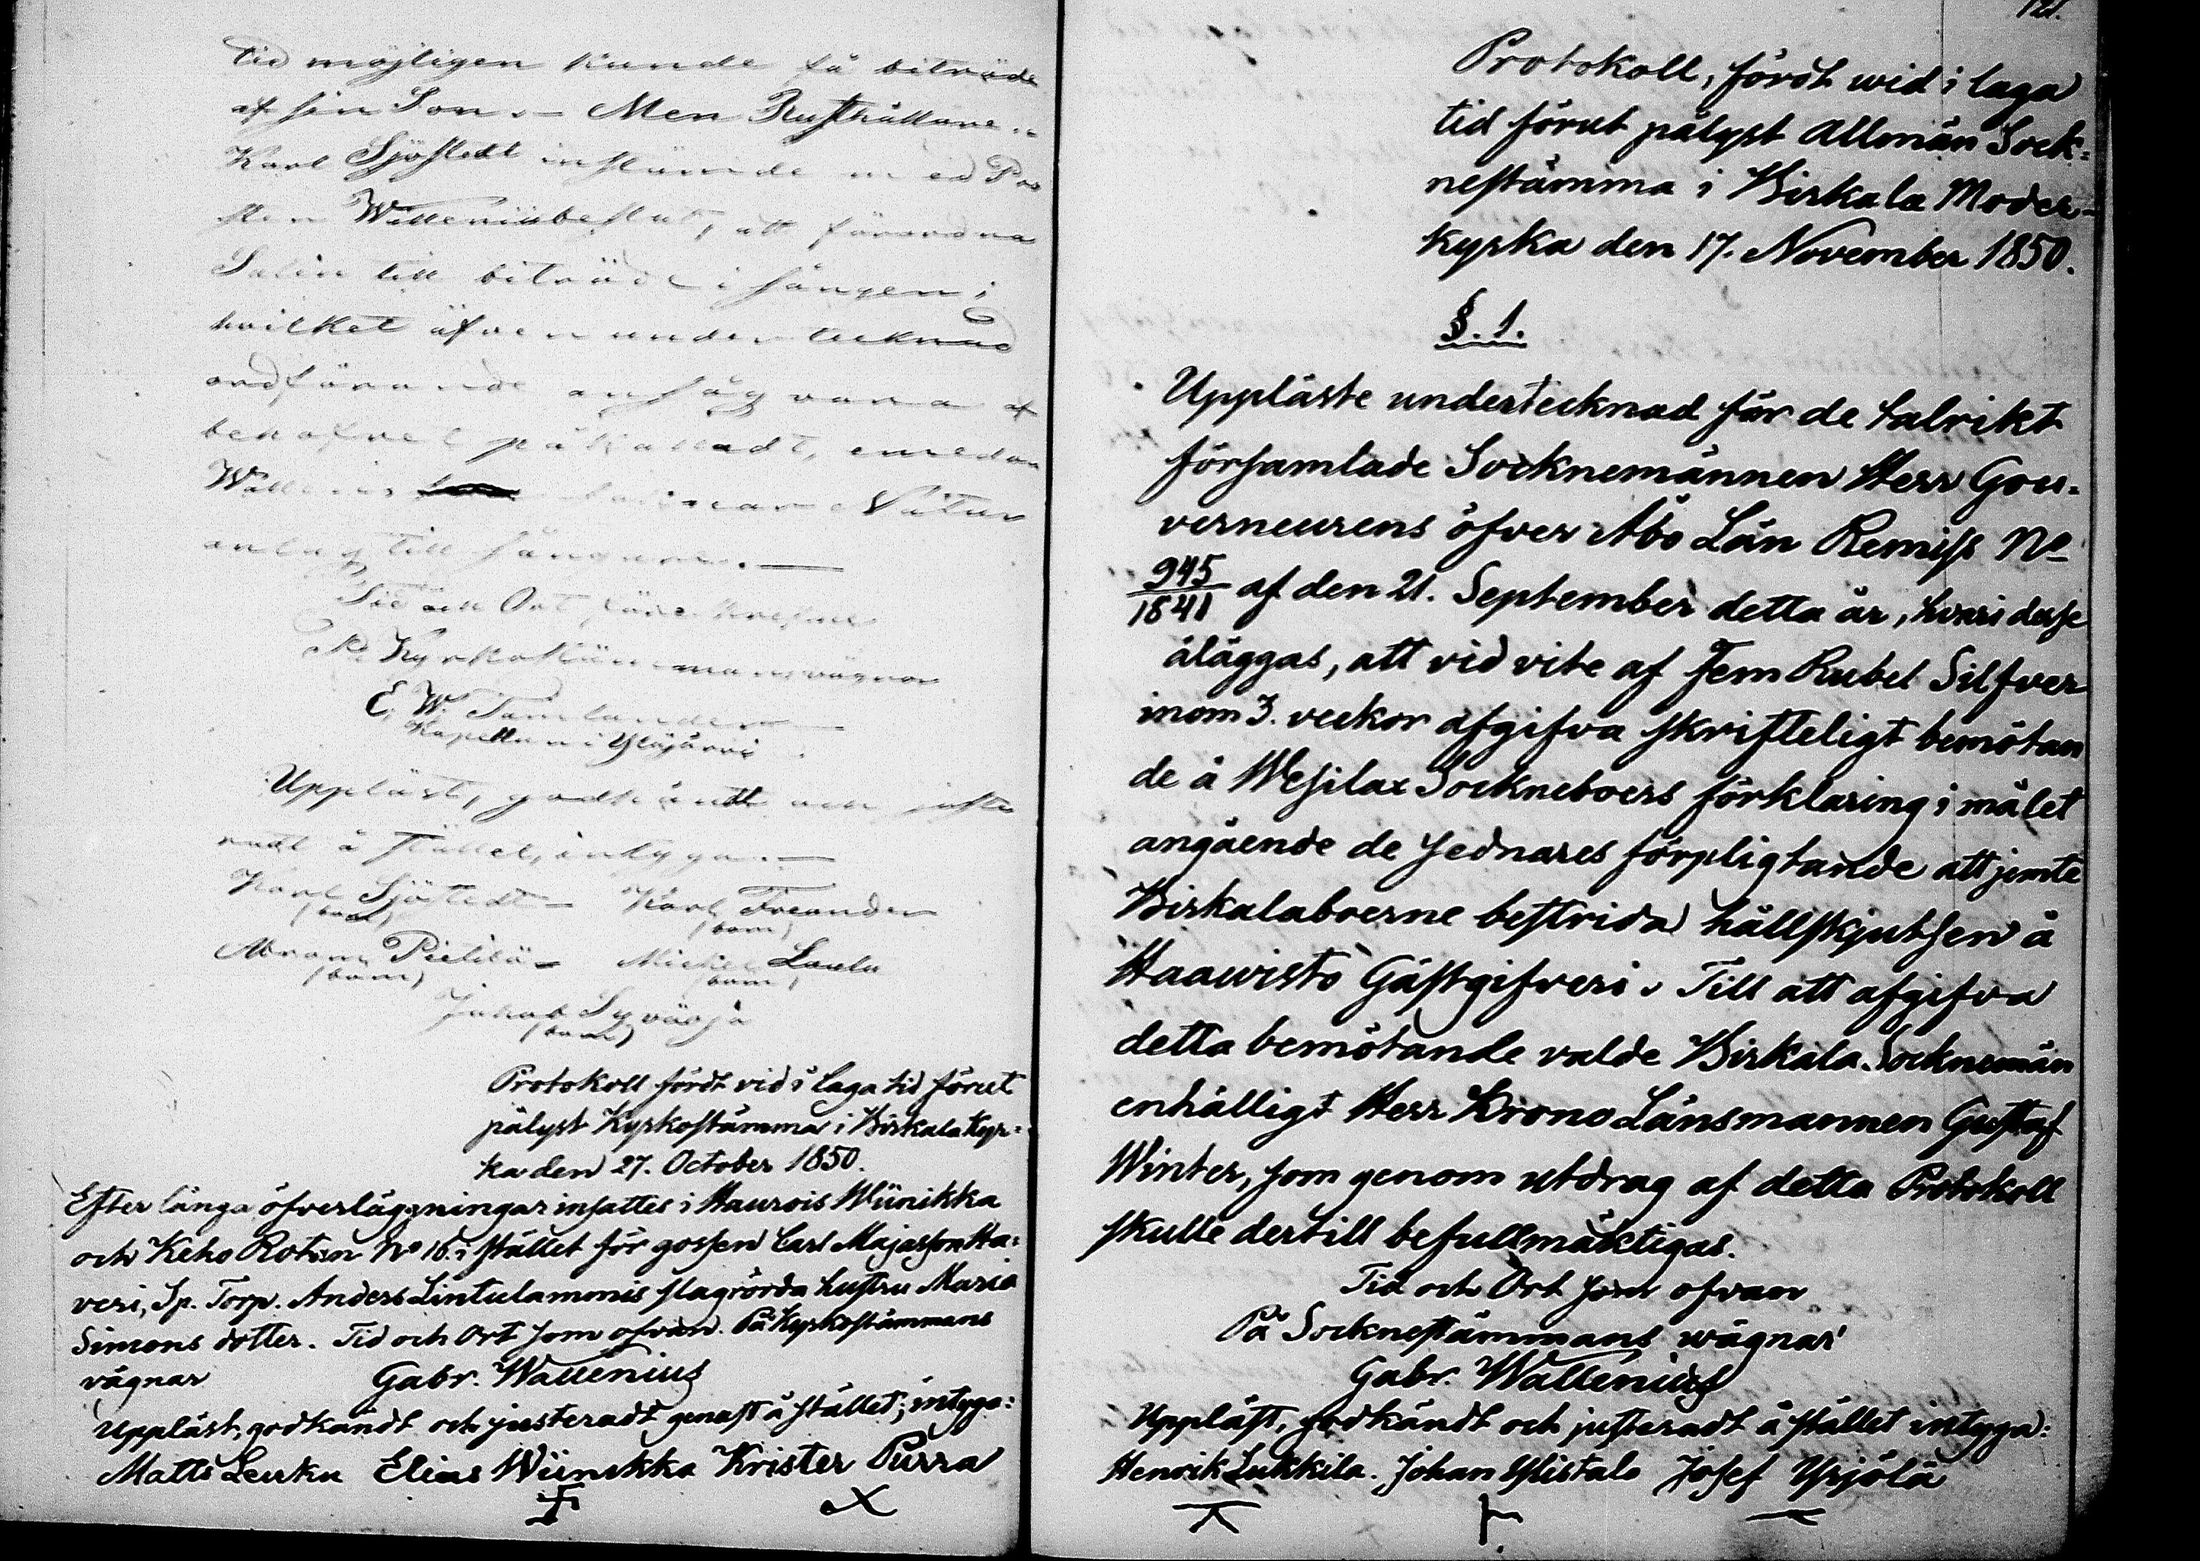 tid möjligen kunde få biträde
af sin Son. – Men Rusthållare
Karl Sjöstedt instämde med Pro
sten Wallenii beslut, att förordna
Salin till biträde i sången;
hvilket äfven undertecknad
ordförande ansåg vara af
behofvet påkalladt, emedan
Wallenius Natur
anlag till sångare. —
Tid och Ort föreskrefne
På Kyrkostämmans vägnar
E. W. Tamlander
Kapellan i Ylöjärvi
Uppläst, godkändt och juste
radt å stället, intyga. —
Karl Sjöstedt – Karl Freander
(bom) (bom)
Abram Pielilä – Mickel Laula
(bom) (bom)
Jakob Syväoja
(bom)
Protokoll fördt vid i laga tid förut
pålyst Kyrkostämma i Birkala Kyr=
ka den 27. October 1850.
Efter långa öfverläggningar insattes i Haurois Wiinikka
och Keho Rotan No 16. i stället för gossen Carl Majasson Ha=
veri, Sp. Torp. Anders Lintulammis slagrörda hustru Maria
Simons dotter. Tid och Ort som ofvan. På Kyrkostämmans
vägnar Gabr. Wallenius
Uppläst, godkändt och justeradt genast å stället; intyga:
Matts Leuku Elias Wiinikka Krister Purra
121.
Protokoll, fördt wid i laga
tid förut pålyst Allmän Sock=
nestämma i Birkala Moder-
kyrka den 17. November 1850.
§. 1.
Uppläste undertecknad för de talrikt
församlade Socknemännen Herr Gou-
verneurens öfver Åbo Län Remiss No
945/1841 af den 21. September detta år, hvari desse
åläggas, att vid vite af Fem Rubel Silfver
inom 3. veckor afgifva skrifteligt bemötan
de å Wesilax Sockneboers förklaring i målet
angående de sednares förpligtande att jemte
Birkalaboerne bestrida hållskjutsen å
Haawisto Gästgifveri. Till att afgifva
detta bemötande valde Birkala Socknemän
enhälligt Herr Krono Länsmannen Gustaf
Winter, som genom utdrag af detta Protokoll
skulle dertill befullmäktigas.
Tid och Ort som ofvan
På Socknestämmans wägnar
Gabr. Wallenius
Uppläst, godkändt och justeradt å stället intyga:
Henrik Lukkila. Johan Ylistalo Josef Yrjölä